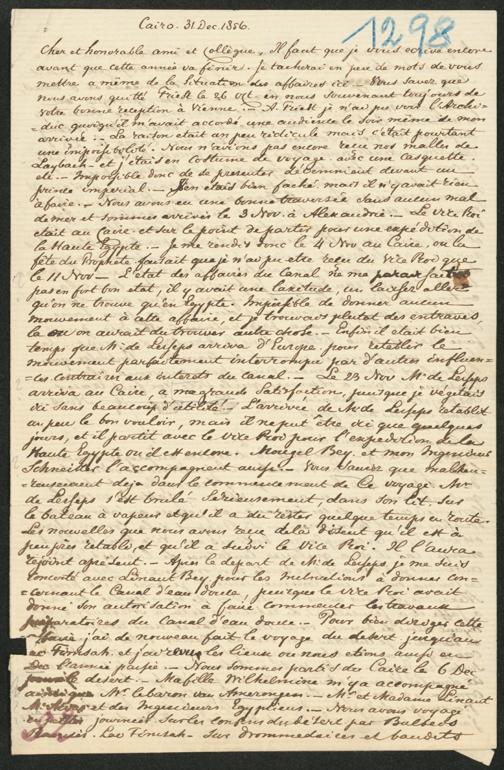 Cairo. 31 Dec. 1856.
1298
Cher et honorable ami et Collègue, Il faut que je vous ecrive encore
avant que cette année va finir. Je tacherai en peu de mots de vous
mettre a même de la Situation des affaires ici. Vous savez que
nous avons quitté Triest le 26 Oct. en nous souvenant toujours de
votre bonne reception à Vienne. — A Triest je n'ai pu voir l'Archi-
duc quoiqu'il m'avait accordé une audience le soir même de mon
arrivée. — La raison etait un peu ridicule mais c'était pourtant
une impossibilité. Nous n'avions pas encore recu nos malles de
Laybach — et j'etais en Costume de voyage avec une Casquette
etc. — Impossible donc de se presenter devant un
prince imperial. — J'en etais bien faché, mais il n'y avait rien
a faire. — Nous avons eu une bonne traversée sans aucun mal
de mer et sommes arrivés le 3 Nov. à Alexandrie. — Le Vice Roi
etait au Caire et sur le point de partir pour une expédition de
la Haute Egypte. — Je me rendis donc le 4 Nov au Caire, ou la
fête du Prophete faisait que je n'ai pu etre recu du Vice Roi que
le 11 Nov — L'etat des affaires du Canal ne me
pas en fort bon etat, il y avait une laxitude, un laisser aller
qu'on ne trouve qu'en Egypte. Impossible de donner aucun
mouvement à cette affaire, et je trouvais plutot des entraves,
la ou on aurait du trouver autre chose. — Enfin il etait bien
temps que Mr de Lesseps arriva d'Europe, pour retablir le
mouvement parfaitement interrompu par d'autres influen-
ces contraires aux interets du Canal. — Le 23 Nov Mr de Lesseps
arriva au Caire, a ma grande Satisfaction, puisque je végétais
ici sans beaucoup d'utilité. — L'arrivée de Mr de Lesseps retablit
un peu le bon vouloir, mais il ne put être ici que quelques
jours, et il partit avec le Vice Roi pour l'expedition de la
Haute Egypte ou il est encore. Mougel Bey et mon Ingenieur
Schneider l'accompagnent aussi. — Vous Saurez que malheu-
reusement deja dans le commencement de Ce voyage Mr
de Lesseps s'est brulé serieusement, dans son lit, sur
le bateau à vapeur et qu'il a du rester quelque temps en route.
Les nouvelles que nous avons recu delà disent qu'il est à
peu près retabli, et qu'il a suivi le Vice Roi. Il l'aura
rejoint apresent. — Après le depart de Mr de Lesseps, je me suis
Concerté avec Linant Bey, pour les instructions a donner con-
cernant le Canal d'eau douce, puisque le Vice Roi avait
donné son autorisation à faire commencer les travaux
préparatoires du Canal d'eau douce. — Pour bien diriger cette
j'ai de nouveau fait le voyage du desert jusqu'au
Lac Timsah. et j'ai revu les lieux ou nous etions aussi
l'année passée. — Nous sommes partis du Caire le 6 Dec
desert. — Ma fille Wilhelmine m'y a accompagné
Mr. le baron van Amerongen — Mr et Madame Linant
et des Ingenieurs Egyptiens. — Nous avons voyagé
journées. Sur les confins du desert par Belbeis
Lac Timsah. — Sur dromedaires et baudets